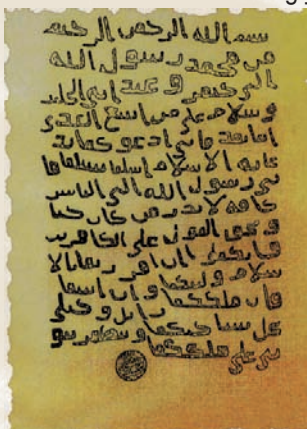 بسم الله الرحمن الرحيم
من محمد رسول الله
الى جيفر و عبد ابني الجلند
وسلام على من اتبع الهدى
اما بعد فاني ادعوكما بد
عاية الاسلام اسلما تسلما فا
ني رسول الله الى الناس
كافة لانذر من كان حيا
و يحق القول على الكافرين
فانكما ان اقررتما بالا
سلام وليتكما وان ابيتما
فان ملككما زايل وخيلي
تحل بساحتكما وتظهر نبو
تي على ملككما